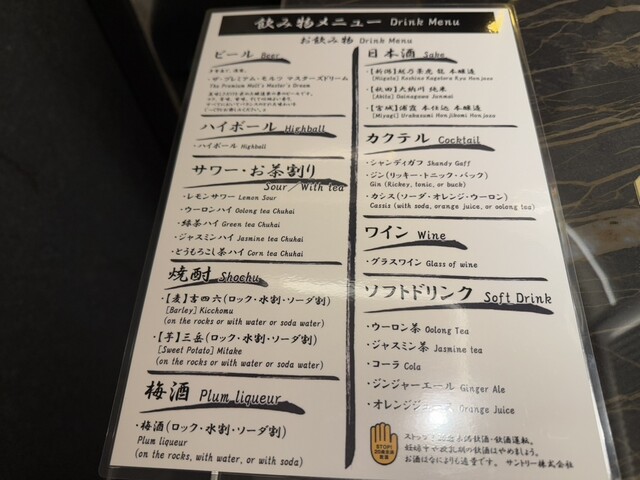 飲み物メニュー Drink Menu
お飲み物 Drink Menu
ビール Beer
・ザ・プレミアム・モルツ マスターズドリーム
The Premium Malt's Master's Dream
ハイボール Highball
・ハイボール Highball
サワー・お茶割り
Sour／With tea
・レモンサワー Lemon Sour
・ウーロンハイ Oolong tea Chuhai
・緑茶ハイ Green tea Chuhai
・ジャスミンハイ Jasmine tea Chuhai
・とうもろこし茶ハイ Corn tea Chuhai
焼酎 Shochu
・【麦】吉四六(ロック・水割・ソーダ割)
[Barley] Kicchomu
(on the rocks or with water or soda water)
・【芋】三岳(ロック・水割・ソーダ割)
[Sweet Potato] Mitake
(on the rocks or with water or soda water)
梅酒 Plum liqueur
・梅酒(ロック・水割・ソーダ割)
Plum liqueur
(on the rocks, with water, or with soda)
日本酒 Sake
・【新潟】越乃景虎 龍 本醸造
[Niigata] Koshino Kagetora Ryu Honjozo
・【秋田】大納川 純米
[Akita] Dainagawa Junmai
・【宮城】浦霞 本仕込 本醸造
[Miyagi] Urakasumi Honjikomi Honjozo
カクテル Cocktail
・シャンディガフ Shandy Gaff
・ジン(リッキー・トニック・バック)
Gin (Rickey, tonic, or buck)
・カシス(ソーダ・オレンジ・ウーロン)
Cassis (with soda, orange juice, or oolong tea)
ワイン Wine
・グラスワイン Glass of wine
ソフトドリンク Soft Drink
・ウーロン茶 Oolong Tea
・ジャスミン茶 Jasmine tea
・コーラ Cola
・ジンジャーエール Ginger Ale
・オレンジジュース Orange Juice
STOP!
ストップ 飲酒・飲酒運転。
妊娠中や授乳期の飲酒はやめましょう。
お酒は何よりも適量です。 サントリー株式会社